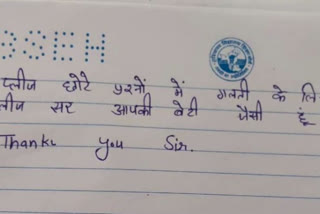 BSEH
प्लीज छोटे प्रश्नों में गलती के लि
लीज सर आपकी बेटी जैसी हूं
Thanku you Sir.